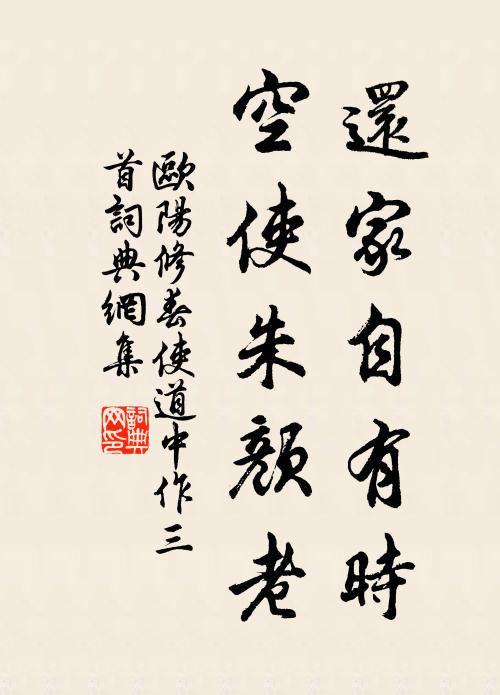 還家自有時
空使朱顏老
歐陽修奉使道中作三
首詞典網集
詞典
网印